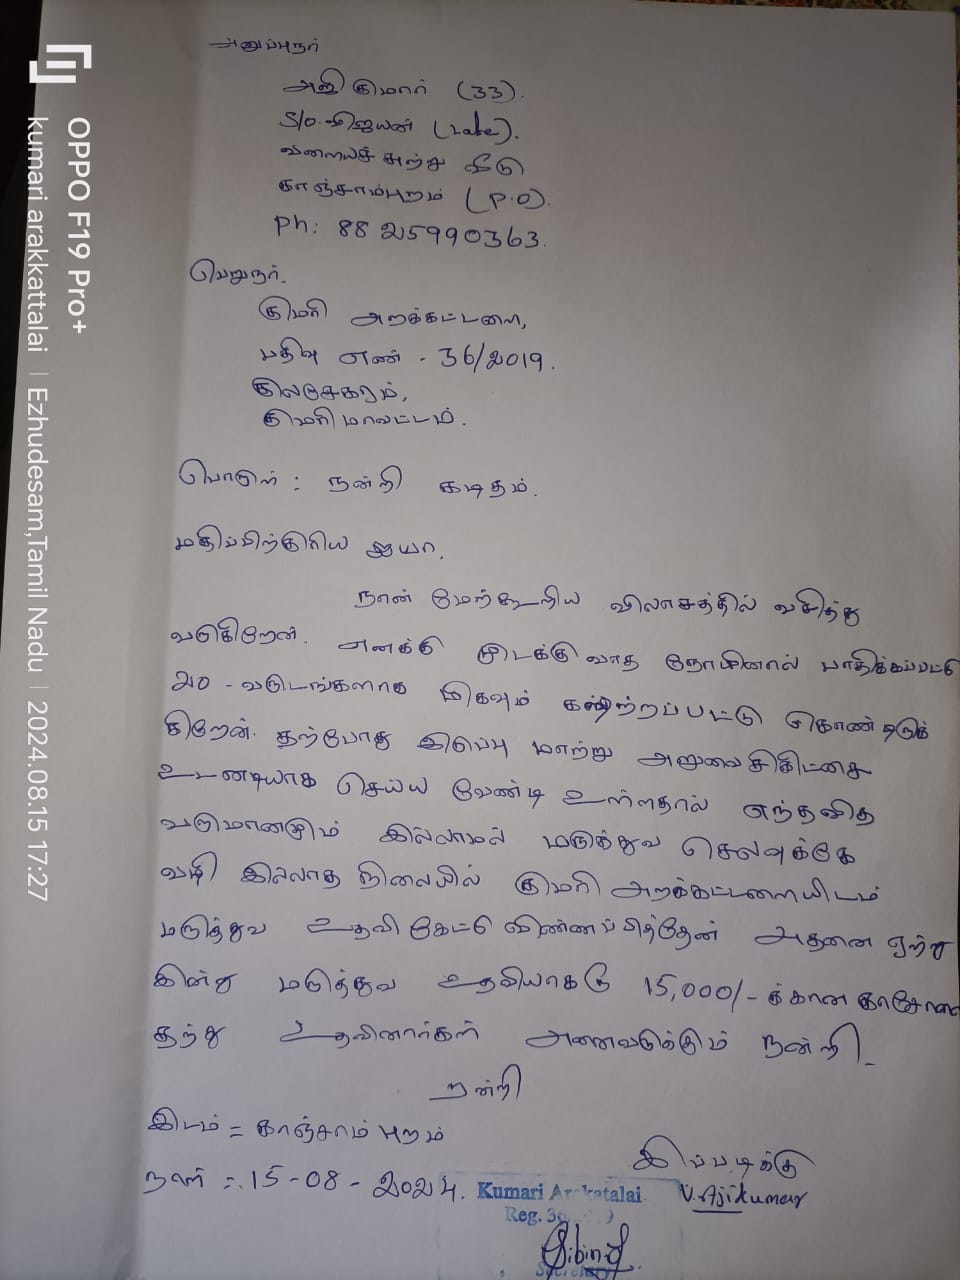 அனுப்புநர்
அஜி குமார் (33).
S/o. விஜயன் (Late).
வளையச் சுற்று வீடு
காஞ்சாம்புறம் (P.O).
Ph: 8825990363.
பெறுநர்.
குமரி அறக்கட்டளை,
பதிவு எண் - 36/2019.
குலசேகரம்,
குமரி மாவட்டம்.
பொருள் : நன்றி கடிதம்.
மதிப்பிற்குரிய ஐயா,
நான் மேற்கூறிய விலாசத்தில் வசித்து
வருகிறேன். எனக்கு முடக்கு வாத நோயினால் பாதிக்கப்பட்டு
20 - வருடங்களாக மிகவும் கஷ்டப்பட்டு கொண்டிருக்
கிறேன். தற்போது இடுப்பு மாற்று அறுவை சிகிட்சை
உடனடியாக செய்ய வேண்டி உள்ளதால் எந்தவித
வருமானமும் இல்லாமல் மருத்துவ செலவுக்கே
வழி இல்லாத நிலையில் குமரி அறக்கட்டளையிடம்
மருத்துவ உதவி கேட்டு விண்ணப்பித்தேன் அதனை ஏற்று
இன்று மருத்துவ உதவியாக ரூ 15,000/- க்கான காசோலை
தந்து உதவினார்கள் அனைவருக்கும் நன்றி.
நன்றி
இடம் = காஞ்சாம்புறம்
நாள் = 15-08-2024.
இப்படிக்கு
V. Ajikumar
Kumari Arakatalai
Reg. 36
Sibin
Secretary
OPPO F19 Pro+
kumari arakkattalai | Ezhudesam,Tamil Nadu | 2024.08.15 17:27